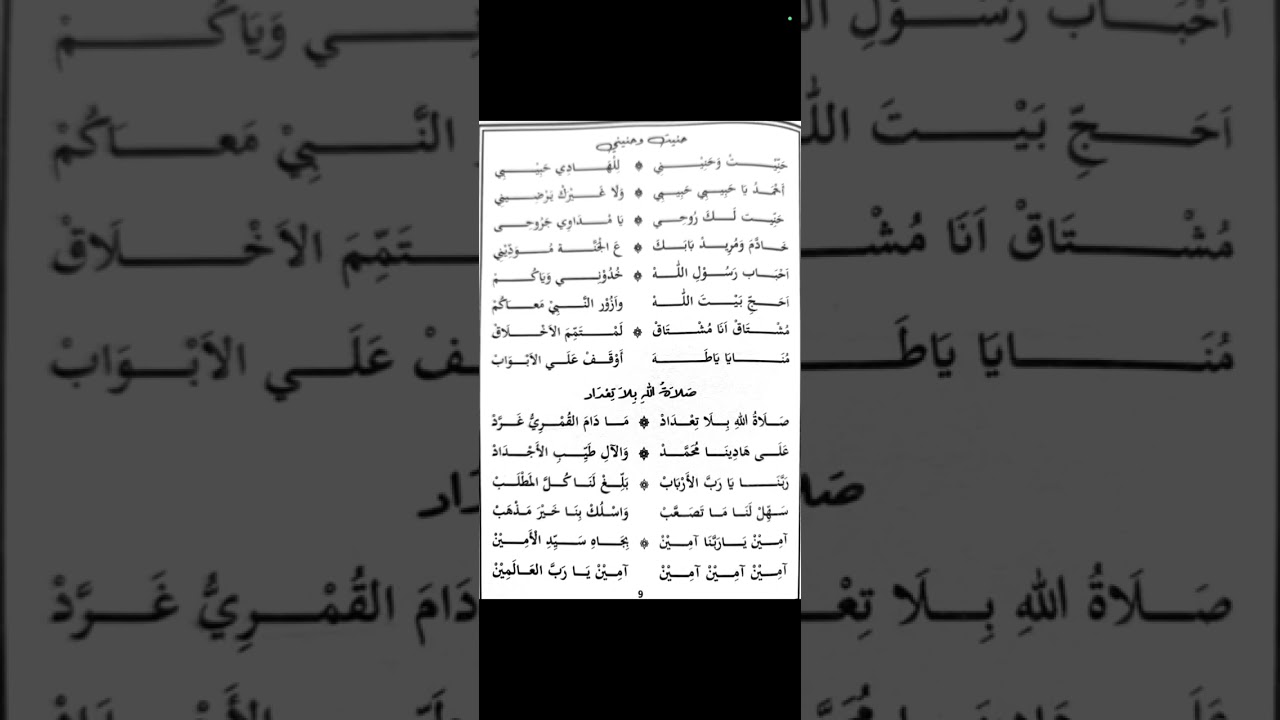 حنيت وحنيني
حَنِّيْتْ وَحَنِيْنِي ۞ لِلْهَادِي حَبِيْبِي
اَحْمَدُ يَا حَبِيبِي حَبِيبِي ۞ وَلَا غَيْرَكْ يَرْضِينِي
حَنِّيت لَكَ رُوحِي ۞ يَا مُدَاوِي جَرُوحِى
خَادِمَ وَمُرِيدْ بَابَكَ ۞ عَ الْجَنَّة مُوَدِّيْنِي
اَحْبَاب رَسُوْلِ اللّٰهْ ۞ خُدُوْنِي وَيَاكُمْ
اَحَجِّ بَيْتَ اللّٰهْ وَاَزُوْر النَّبِيْ مَعَاكُمْ
مُشْتَاقْ اَنَا مُشْتَاقْ ۞ لَمْتَمِّمَ الاَخْلَاقْ
مُنَايَا يَاطَهَ أَوْقَفْ عَلَي الاَبْوَابْ
صَلَاةُ اللهِ بِلَا تِعْدَاد
صَلَاةُ اللهِ بِلَا تِعْدَادْ ۞ مَا دَامَ القُمْرِيُّ غَرَّدْ
عَلَى هَادِينَا مُحَمَّدْ ۞ وَالآلِ طَيِّبِ الأَجْدَادْ
رَبَّنَا يَا رَبَّ الأَرْبَابْ ۞ بَلِّغْ لَنَا كُلَّ المَطْلَبْ
سَهِّلْ لَنَا مَا تَصَعَّبْ وَاسْلُكْ بِنَا خَيْرَ مَذْهَبْ
آمِيْنْ يَارَبَّنَا آمِيْنْ ۞ بِجَاهِ سَيِّدِ الْأَمِيْنْ
آمِيْنْ آمِيْنْ آمِيْنْ آمِيْنْ يَا رَبَّ العَالَمِيْنْ
9